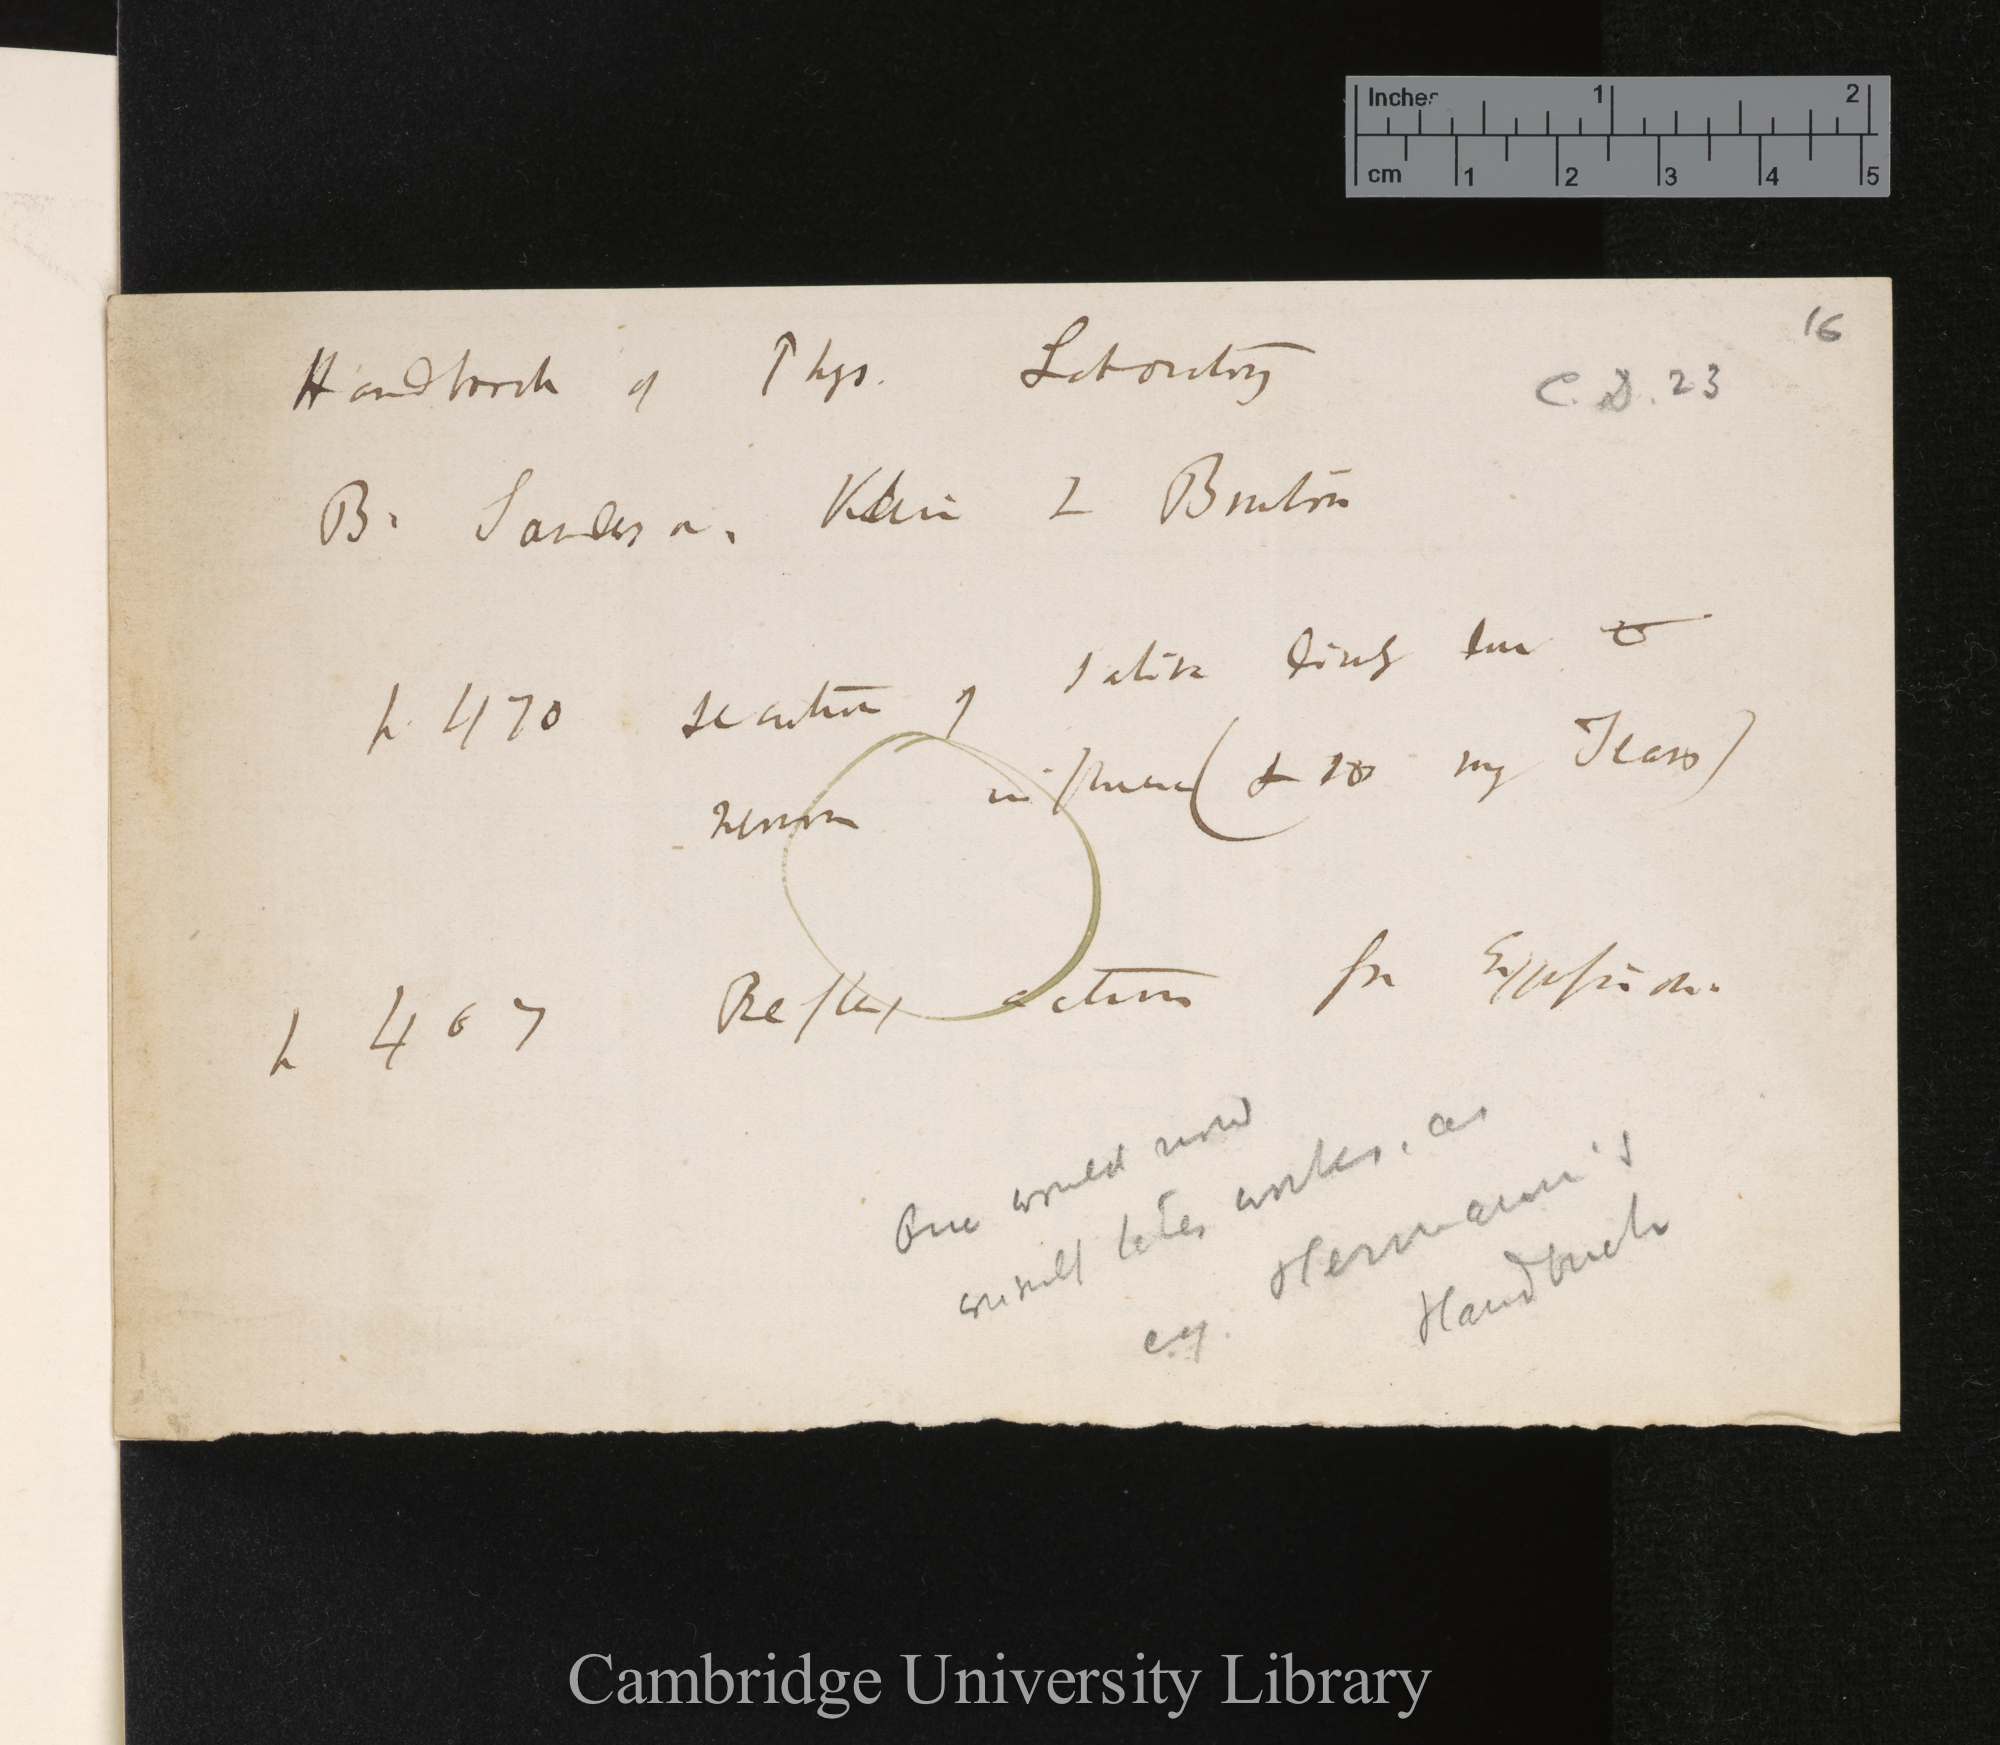 Inches 1 2
cm 1 2 3 4 5
16
Handbook of Phys. Laboratory
C. D. 23
B. Sanderson. Klein & Brunton
p. 470 secretion of saliva directly due to
nervous influence (& so my Tears)
p 467 Reflex actions for Expression.
One would now
consult later works, as
e.g. Hermann's
Handbuch
Cambridge University Library